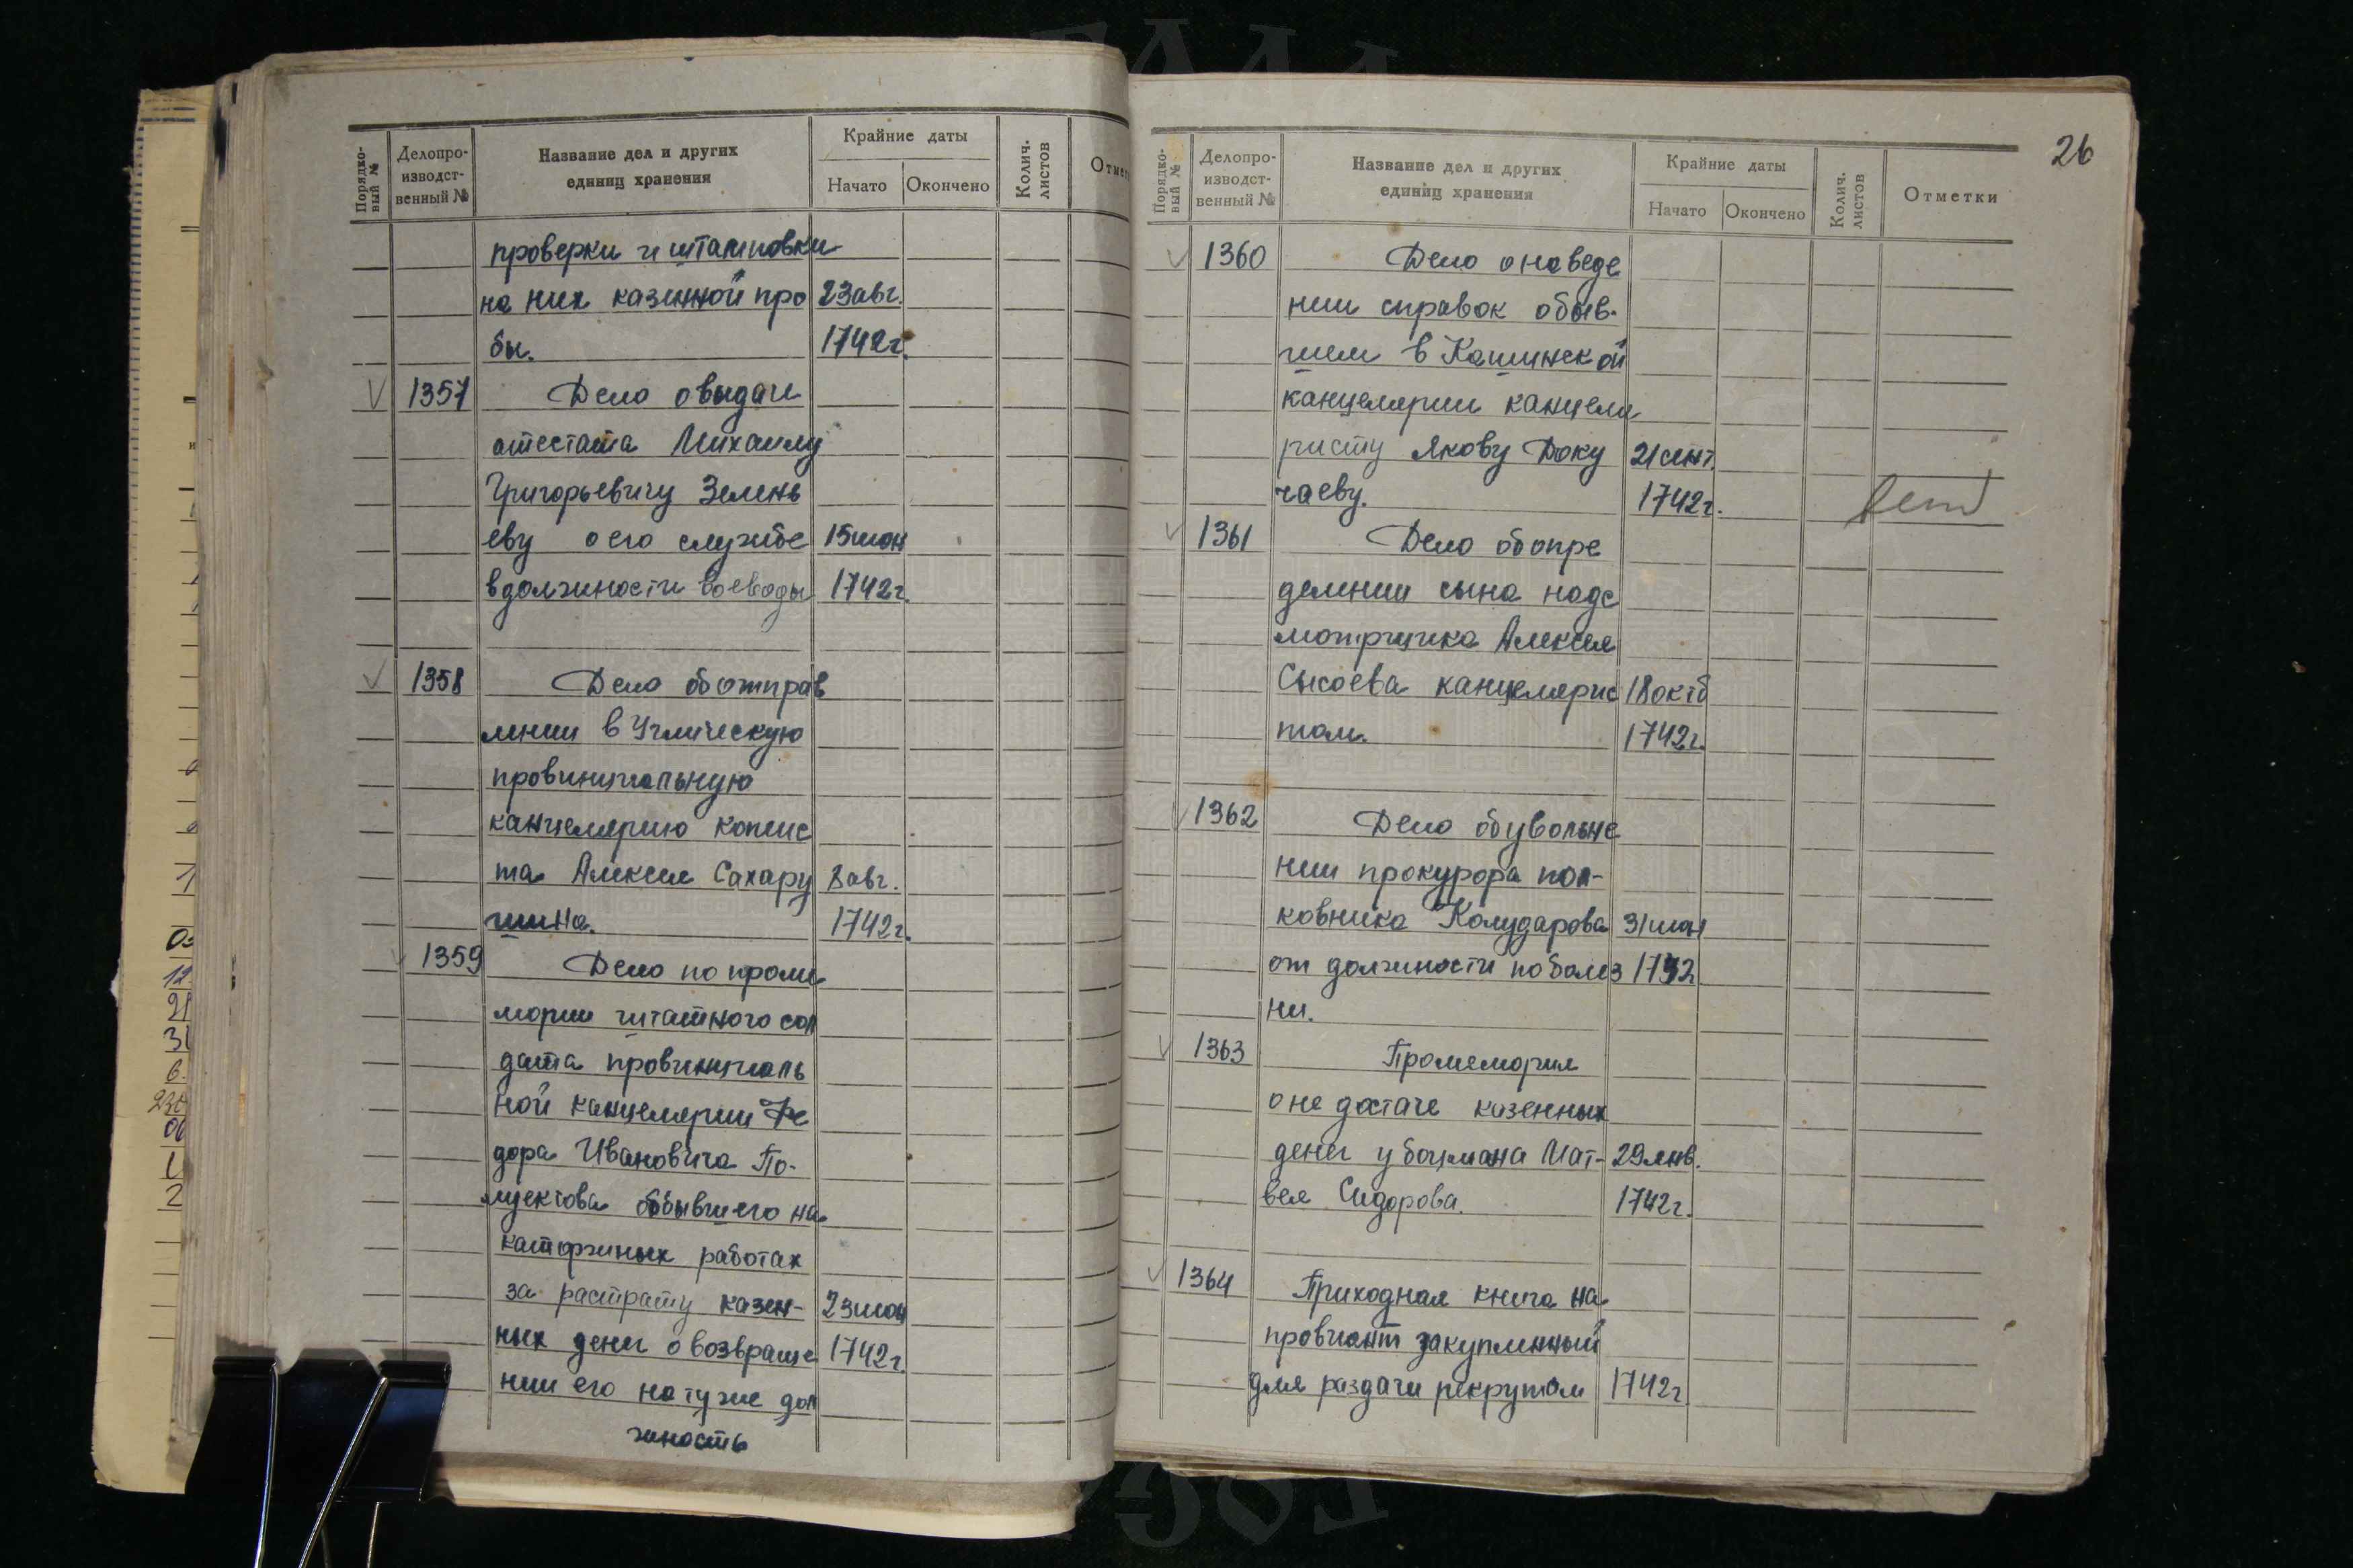 Порядко-
вый №
Делопро-
изводст-
венный №
Название дел и других
единиц хранения
Крайние даты
Начато Окончено
Колич.
листов
проверки и штамповки
на них казенной про 23 авг.
бы. 1742г.
V 1357 Дело о выдаче
аттестата Михаилу
Григорьевичу Зелень
еву о его службе 15 июн
в должности воеводы 1742г.
V 1358 Дело об отправ
лении в Углическую
провинциальную
канцелярию копиис
та Алексея Сахару 8 авг.
шина. 1742г.
V 1359 Дело по проме
мории штатного сол
дата провинциаль
ной канцелярии Фе
дора Ивановича По-
луектова обывшего на
каторжных работах
за растрату казен- 23 июн
ных денег о возвраще 1742г.
нии его на ту же дол
жность
26
Порядко-
вый №
Делопро-
изводст-
венный №
Название дел и других
единиц хранения
Крайние даты
Начато Окончено
Колич.
листов
Отметки
V 1360 Дело о наведе
нии справок о быв-
шем в Кашинской
канцелярии канцеля
ристу Якову Доку 21 сент.
чаеву. 1742г.
V 1361 Дело об опре
делении сына надс
мотрщика Алексея
Сысоева канцелярис 18 октб
том. 1742г.
V 1362 Дело об увольне
нии прокурора пол-
ковника Колударова 31 июн
от должности по болез 1742
ни.
V 1363 Промемория
о не достаче казенных
денег у боцмана Мат- 29 янв.
вея Сидорова. 1742г.
V 1364 Приходная книга на
провиант закупленный
для раздачи рекрутам 1742г